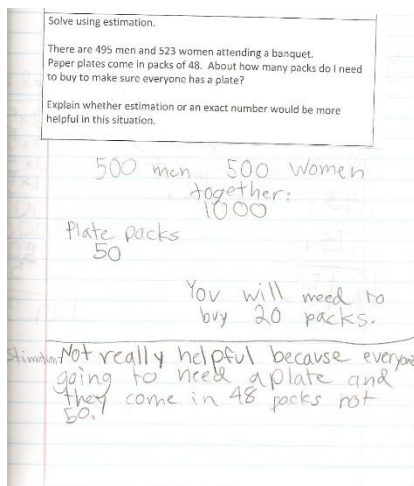 Solve using estimation.
There are 495 men and 523 women attending a banquet.
Paper plates come in packs of 48. About how many packs do I need
to buy to make sure everyone has a plate?
Explain whether estimation or an exact number would be more
helpful in this situation.
500 men 500 Women
together:
1000
Plate packs
50
You will need to
buy 20 packs.
Stimation Not really helpful because everyone
going to need a plate and
they come in 48 packs not
50.